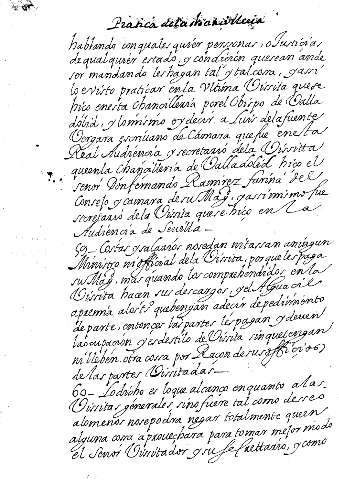 Pratica de la chancilleria
hablando con quales quier personas, o Justicias
de qualquier estado, y condicion que sean ande
ser mandando les hagan tal y tal cosa, y asi
lo e visto praticar en la Vltima Vissita que se
hiço en esta Chancilleria por el Obispo de Valla
dolid, y lo mismo oy decir a Luis de la fuente
Vergara escriuano de Cámara que fue en esta
Real Audiencia y secretario de la Vissitta
que en la Chancilleria de Valladolid hiço el
señor Don fernando Ramirez fariña del
Consejo y camara de su Mag. y assimismo fue
secretario de la Vissita que se hiço en la
Audiencia de Seuilla.
59 Costas y salarios no se dan ni tassan a ningun
Ministro ni official de la Vissita, porque les paga
su Mag. mas quando los comprehendidos en la
Vissita hacen sus descargos, y el Aguacil
apremia a los tos que bengan a decir de pedimiento
de parte, entonces las partes les pagan y deuen
la ocupacion y es estilo de Visita sin que tengan
ni lleben otra cossa por Raçon de sus officios
de las partes Vissitadas.
60 Lo dicho es lo que alcanço en quanto a las
Vissitas generales, si no fuere tal como desseo
a lo menos no se podra negar totalmente que en
alguna cosa aprouechara para tomar mejor modo
el Señor Vissitador y su secrettario, y como